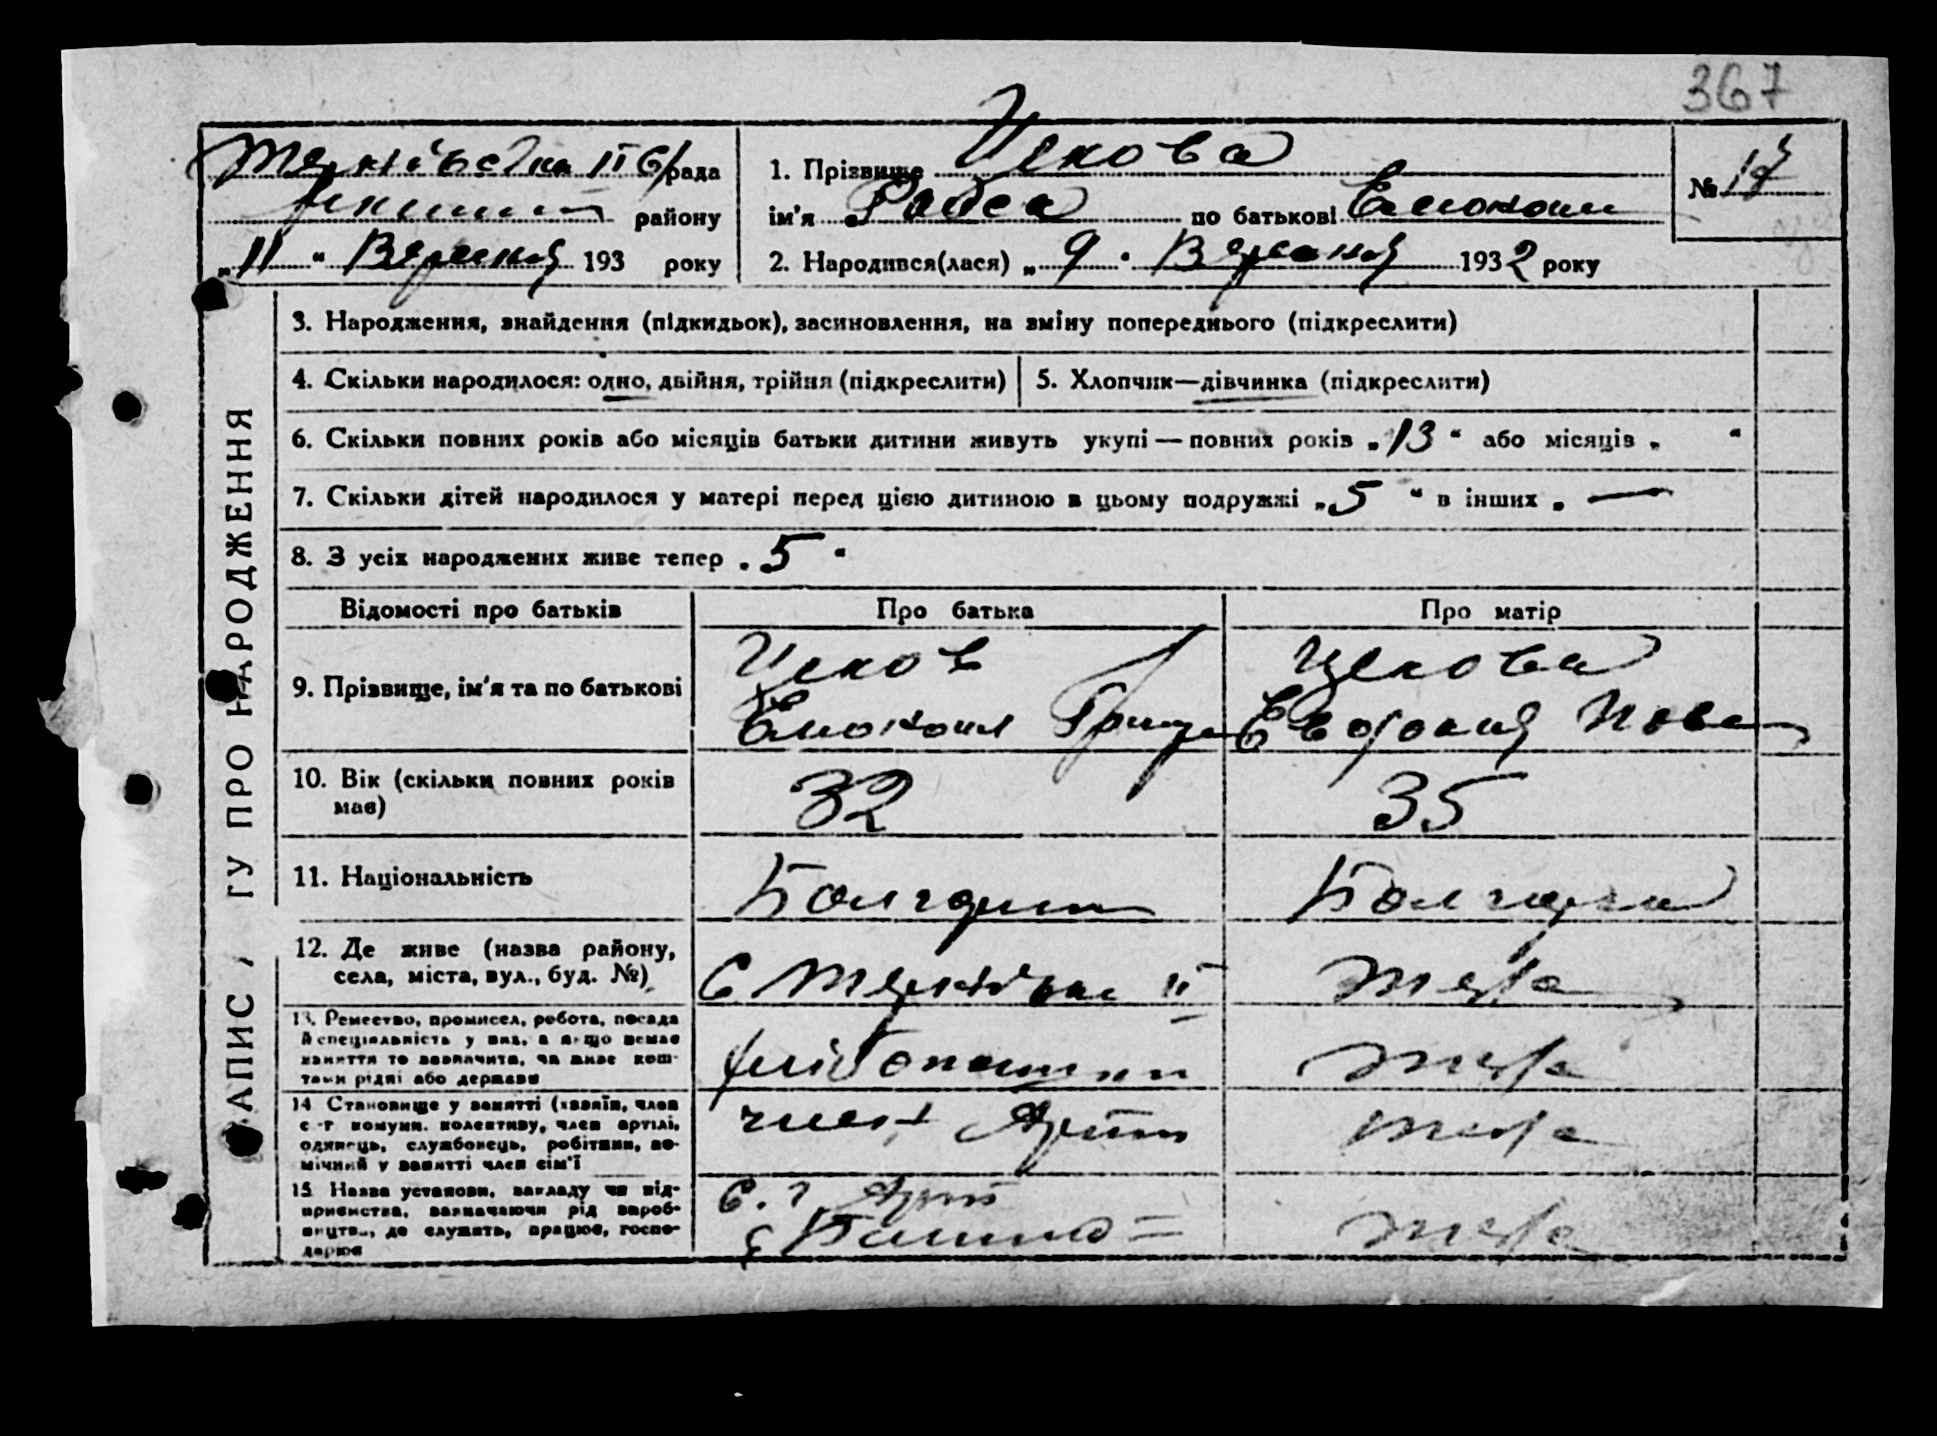 367
рада
1. Прізвище Цекова
№ 17
району
ім'я Раиса по батькові
„11“ Вересня 193 року
2. Народився(лася) „9“ Вересня 1932 року
3. Народження, знайдення (підкидьок), засиновлення, на зміну попереднього (підкреслити)
4. Скільки народилося: одно, двійня, трійня (підкреслити)
5. Хлопчик—дівчинка (підкреслити)
6. Скільки повних років або місяців батьки дитини живуть укупі — повних років „13“ або місяців „ “
7. Скільки дітей народилося у матері перед цією дитиною в цьому подружжі „5“ в інших „ —
8. З усіх народжених живе тепер „5“
ЗАПИС АГУ ПРО НАРОДЖЕННЯ
Відомості про батьків
Про батька
Про матір
9. Прізвище, ім'я та по батькові
Цеков
Цекова
Евдокия
10. Вік (скільки повних років має)
32
35
11. Національність
Болгарин
Болгарка
12. Де живе (назва району,
села, міста, вул., буд. №)
с II
теж
13. Ремество, промисел, робота, посада
й спеціяльність у них, а якщо немає
заняття то зазначити, чи живе кош-
тами рідні або держави
хлібопашин
теж
14 Становище у занятті (хазяїн, член
с-г комуни. колективу, член артілі,
одинець, службовець, робітник, по-
мічний у занятті член сім'ї
член Артіл
теж
15 Назва установи, закладу чи під-
приємства, зазначаючи рід вироб-
ництва, де служить, працює, госпо-
дарює
с. г Арт
теж